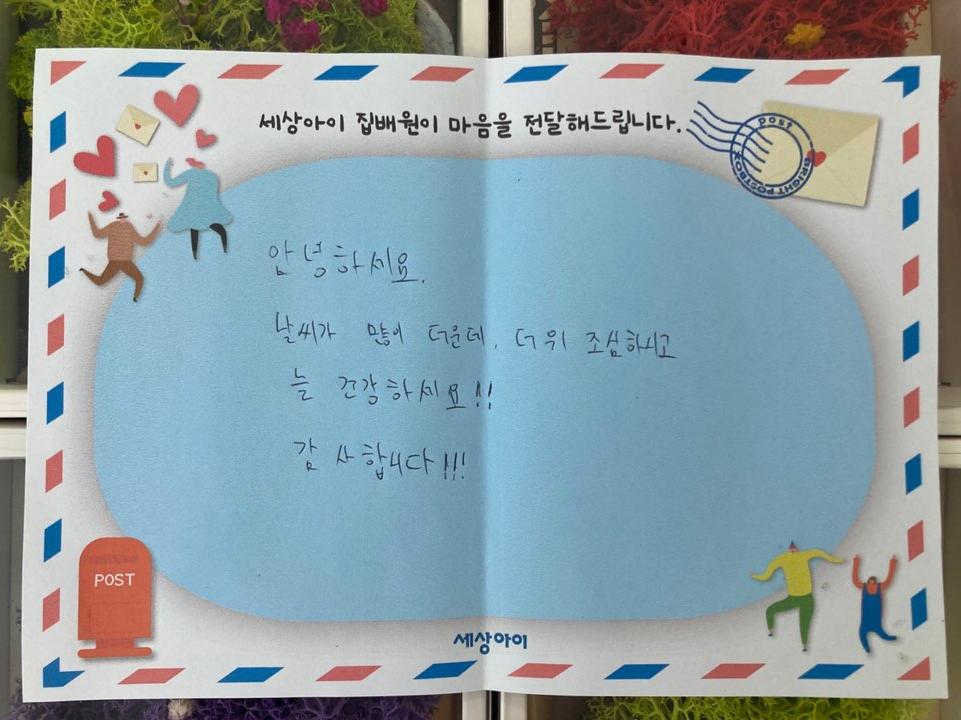 세상아이 집배원이 마음을 전달해드립니다.
POST
BRIGHT POSTBOX
안녕하세요.
날씨가 많이 더운데, 더위 조심하시고
늘 건강하세요!!
감사합니다!!!
POST
세상아이